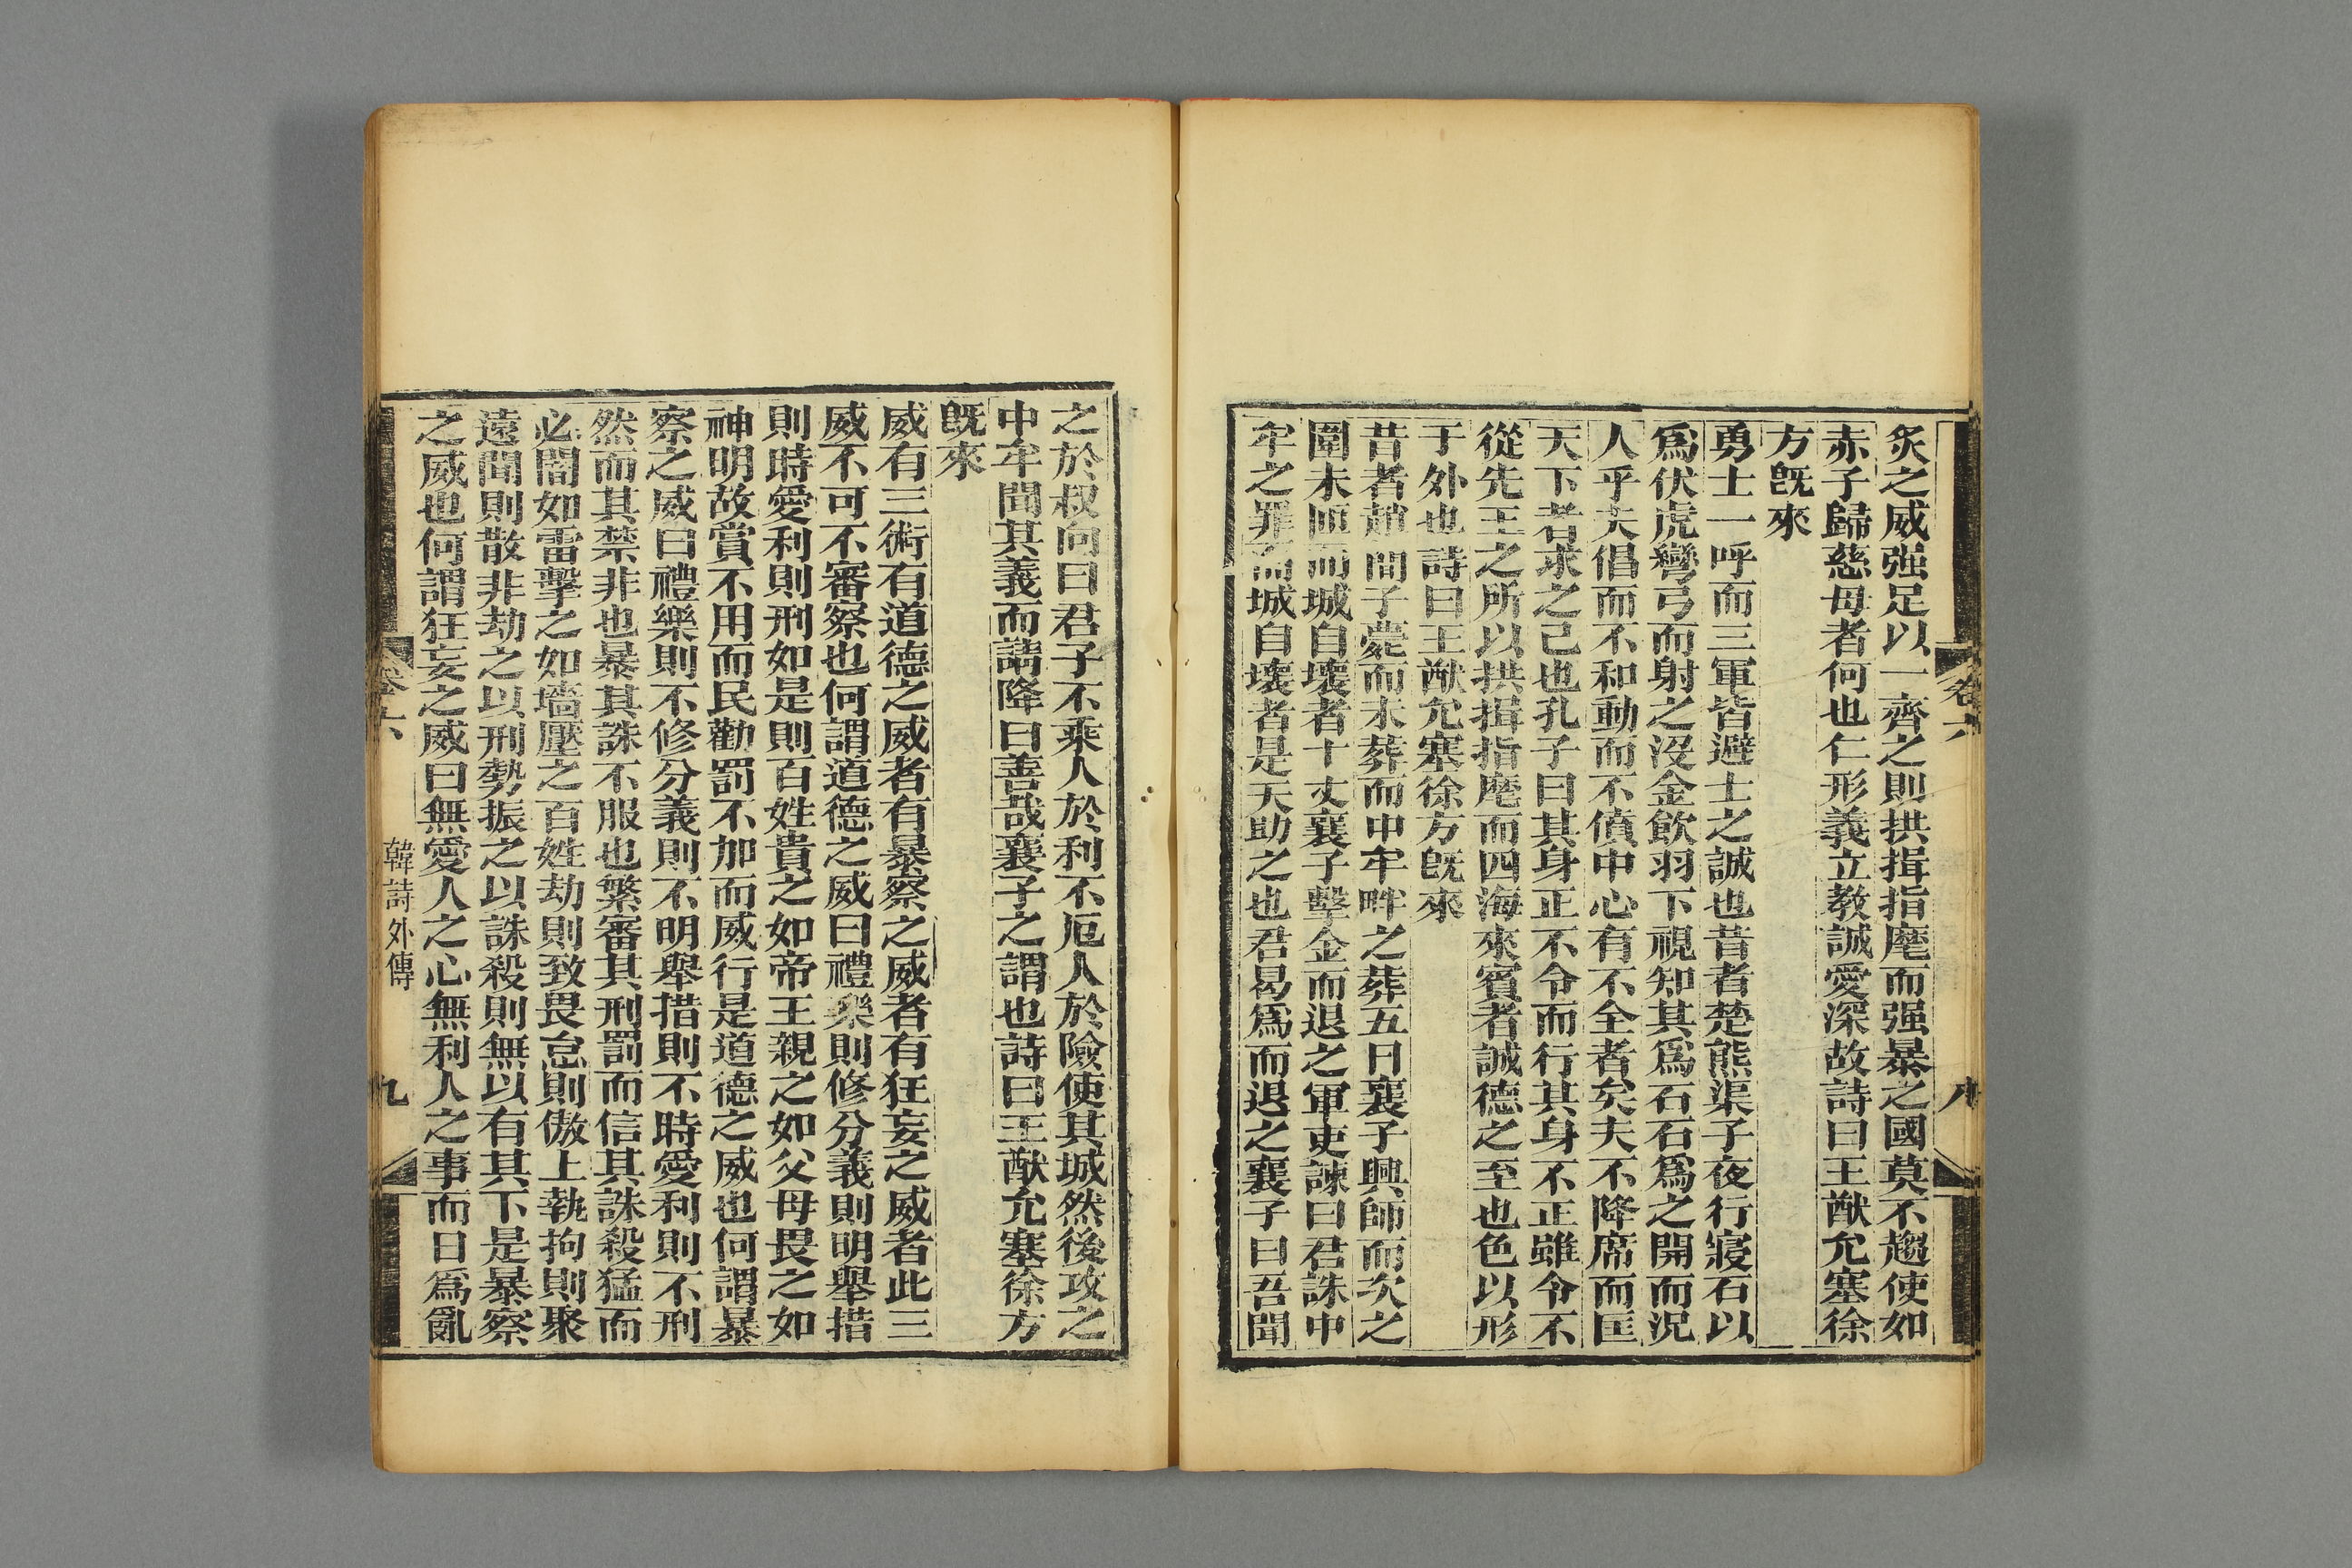 卷六
八
炙之威强足以一齊之則拱揖指麾而强暴之國莫不趨使如
赤子歸慈母者何也仁形義立教誠愛深故詩曰王猷允塞徐
方旣來
勇士一呼而三軍皆避士之誠也昔者楚熊渠子夜行寢石以
爲伏虎彎弓而射之沒金飮羽下視知其爲石石爲之開而況
人乎夫倡而不和動而不僨中心有不全者矣夫不降席而匡
天下者求之己也孔子曰其身正不令而行其身不正雖令不
從先王之所以拱揖指麾而四海來賓者誠德之至也色以形
于外也詩曰王猷允塞徐方旣來
昔者趙簡子薨而未葬而中牟畔之葬五日襄子興師而次之
圍未匝而城自壞者十丈襄子擊金而退之軍吏諫曰君誅中
牟之罪而城自壞者是天助之也君曷爲而退之襄子曰吾聞
之於叔向曰君子不乘人於利不厄人於險使其城然後攻之
中牟聞其義而請降曰善哉襄子之謂也詩曰王猷允塞徐方
旣來
威有三術有道德之威者有暴察之威者有狂妄之威者此三
威不可不審察也何謂道德之威曰禮樂則修分義則明舉措
則時愛利則刑如是則百姓貴之如帝王親之如父母畏之如
神明故賞不用而民勸罰不加而威行是道德之威也何謂暴
察之威曰禮樂則不修分義則不明舉措則不時愛利則不刑
然而其禁非也暴其誅不服也繁審其刑罰而信其誅殺猛而
必闇如雷擊之如墻壓之百姓劫則致畏怠則傲上執拘則聚
遠聞則散非劫之以刑勢振之以誅殺則無以有其下是暴察
之威也何謂狂妄之威曰無愛人之心無利人之事而日爲亂
卷六
韓詩外傳
九